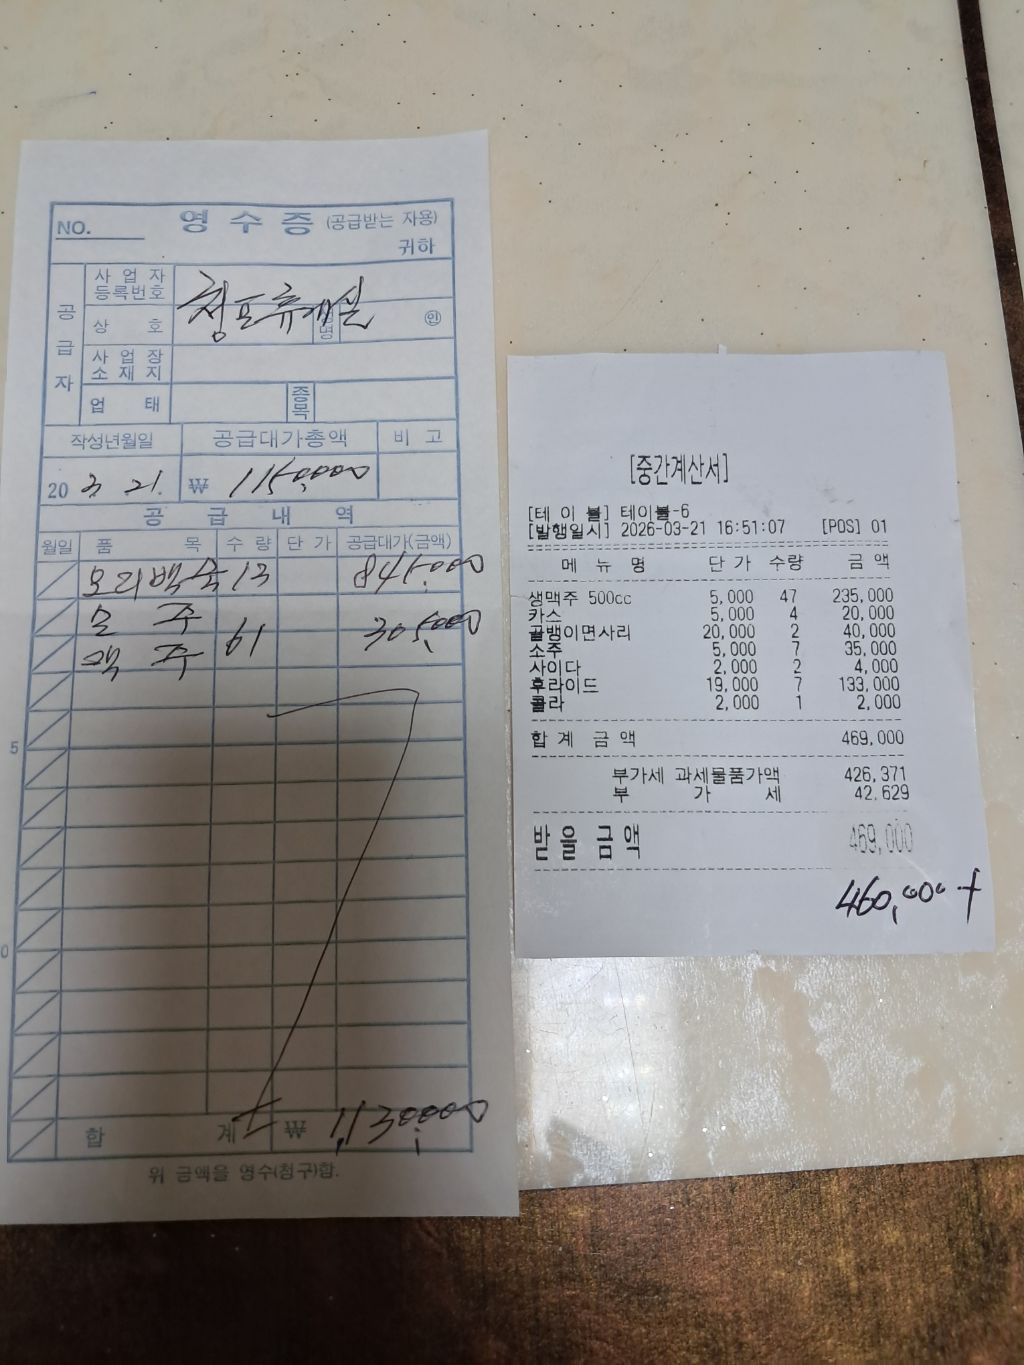 NO.
영 수 증 (공급받는 자용)
귀하
공급자
사 업 자
등록번호
상 호 청포휴게실 성명 ㊞
사 업 장
소 재 지
업 태 종목
작성년월일 공급대가총액 비 고
20 3 21. ₩
공 급 내 역
월일 품 목 수 량 단 가 공급대가(금액)
오리백숙 13 845,000
소 주
맥 주 61 305,000
5
0
합 계 ₩ 1,130,000
위 금액을 영수(청구)함.
[중간계산서]
[테 이 블] 테이블-6
[발행일시] 2026-03-21 16:51:07 [POS] 01
메 뉴 명 단 가 수량 금 액
생맥주 500cc 5,000 47 235,000
카스 5,000 4 20,000
골뱅이면사리 20,000 2 40,000
소주 5,000 7 35,000
사이다 2,000 2 4,000
후라이드 19,000 7 133,000
콜라 2,000 1 2,000
합 계 금 액 469,000
부가세 과세물품가액 426,371
부 가 세 42,629
받 을 금 액 469,000
460,000